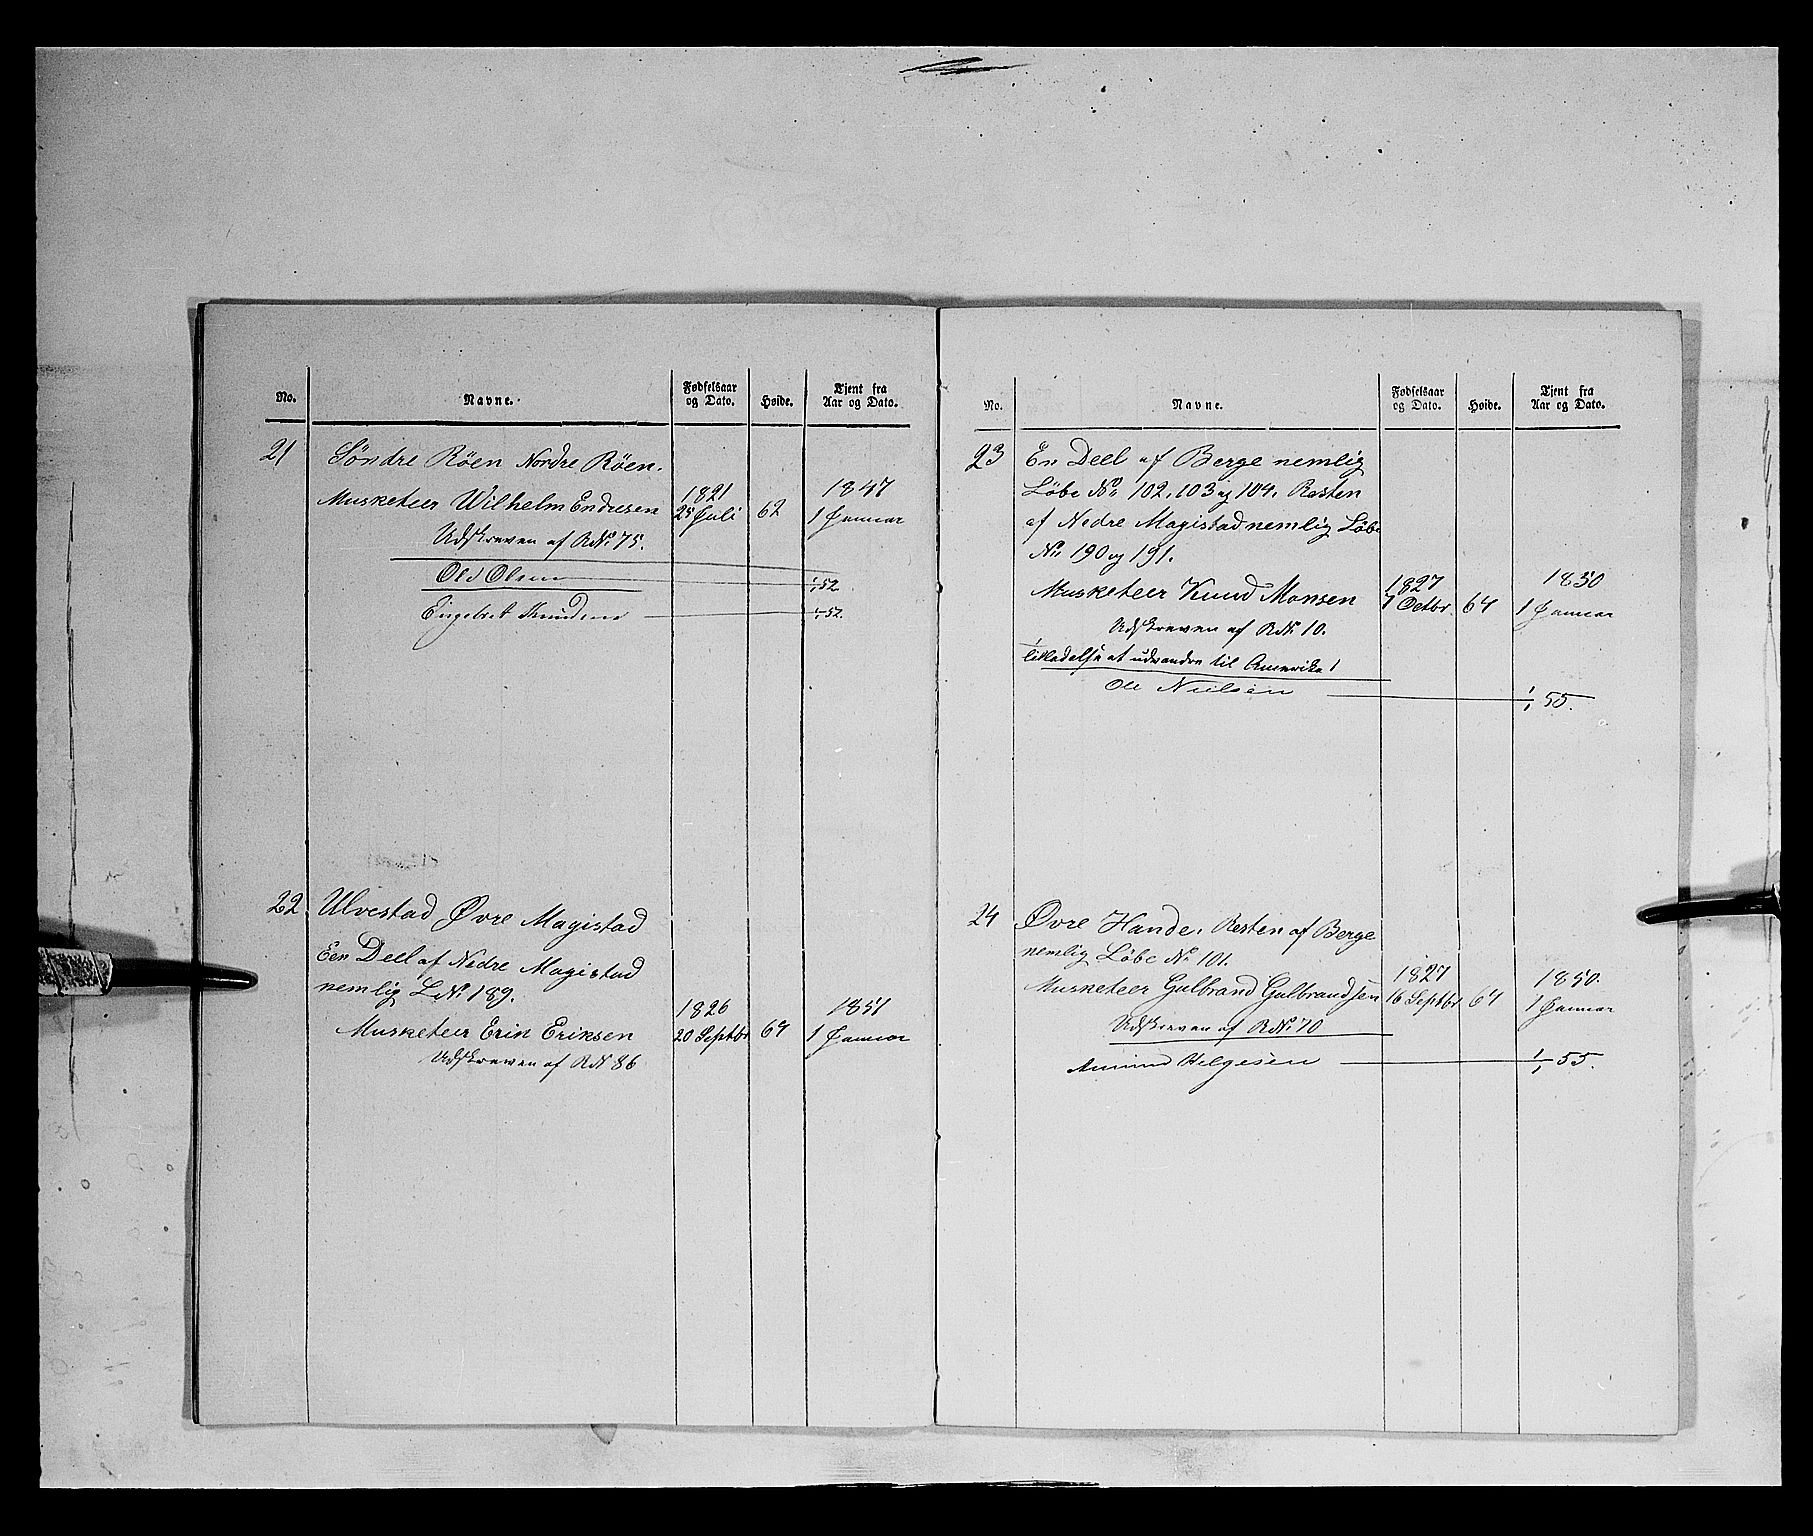 No.
Navne.
Fødselsaar
og Dato.
Høide.
Tjent fra
Aar og Dato.
21
Söndre Röen Nordre Röen.
Musketeer Wilhelm Endresen
1821
25 Juli
62
1847
1 Januar
Udskreven af RN. 75.
Ole Olsen
1/1 52.
Engebret Knudsen
1/1 52.
22.
Ulvestad Øvre Magistad
Een Deel af Nedre Magistad
nemlig L N. 189.
Musketeer Erik Eriksen
1826
20 Septbr
64
1851
1 Januar
Udskreven af RN 86
No.
Navne.
Fødselsaar
og Dato.
Høide.
Tjent fra
Aar og Dato.
23
En Deel af Berge nemlig
Löbe No. 102, 103 og 104. Resten
af Nedre Magistad nemlig Löbe
No. 190 og 191.
Musketeer Knud Monsen
1827
7 Octbr.
64
1850
1 Januar
Udskreven af RN. 10.
tilladelse at udvandre til Amerika
Ole Nielsen
1/1 55.
24
Øvre Hande. Resten af Berge
nemlig Löbe No. 101.
Musketeer Gulbrand Gulbrandsen
1827
16 Septbr
64
1850.
1 Januar
Udskreven af RN. 70
Amund Helgesen
1/1 55.